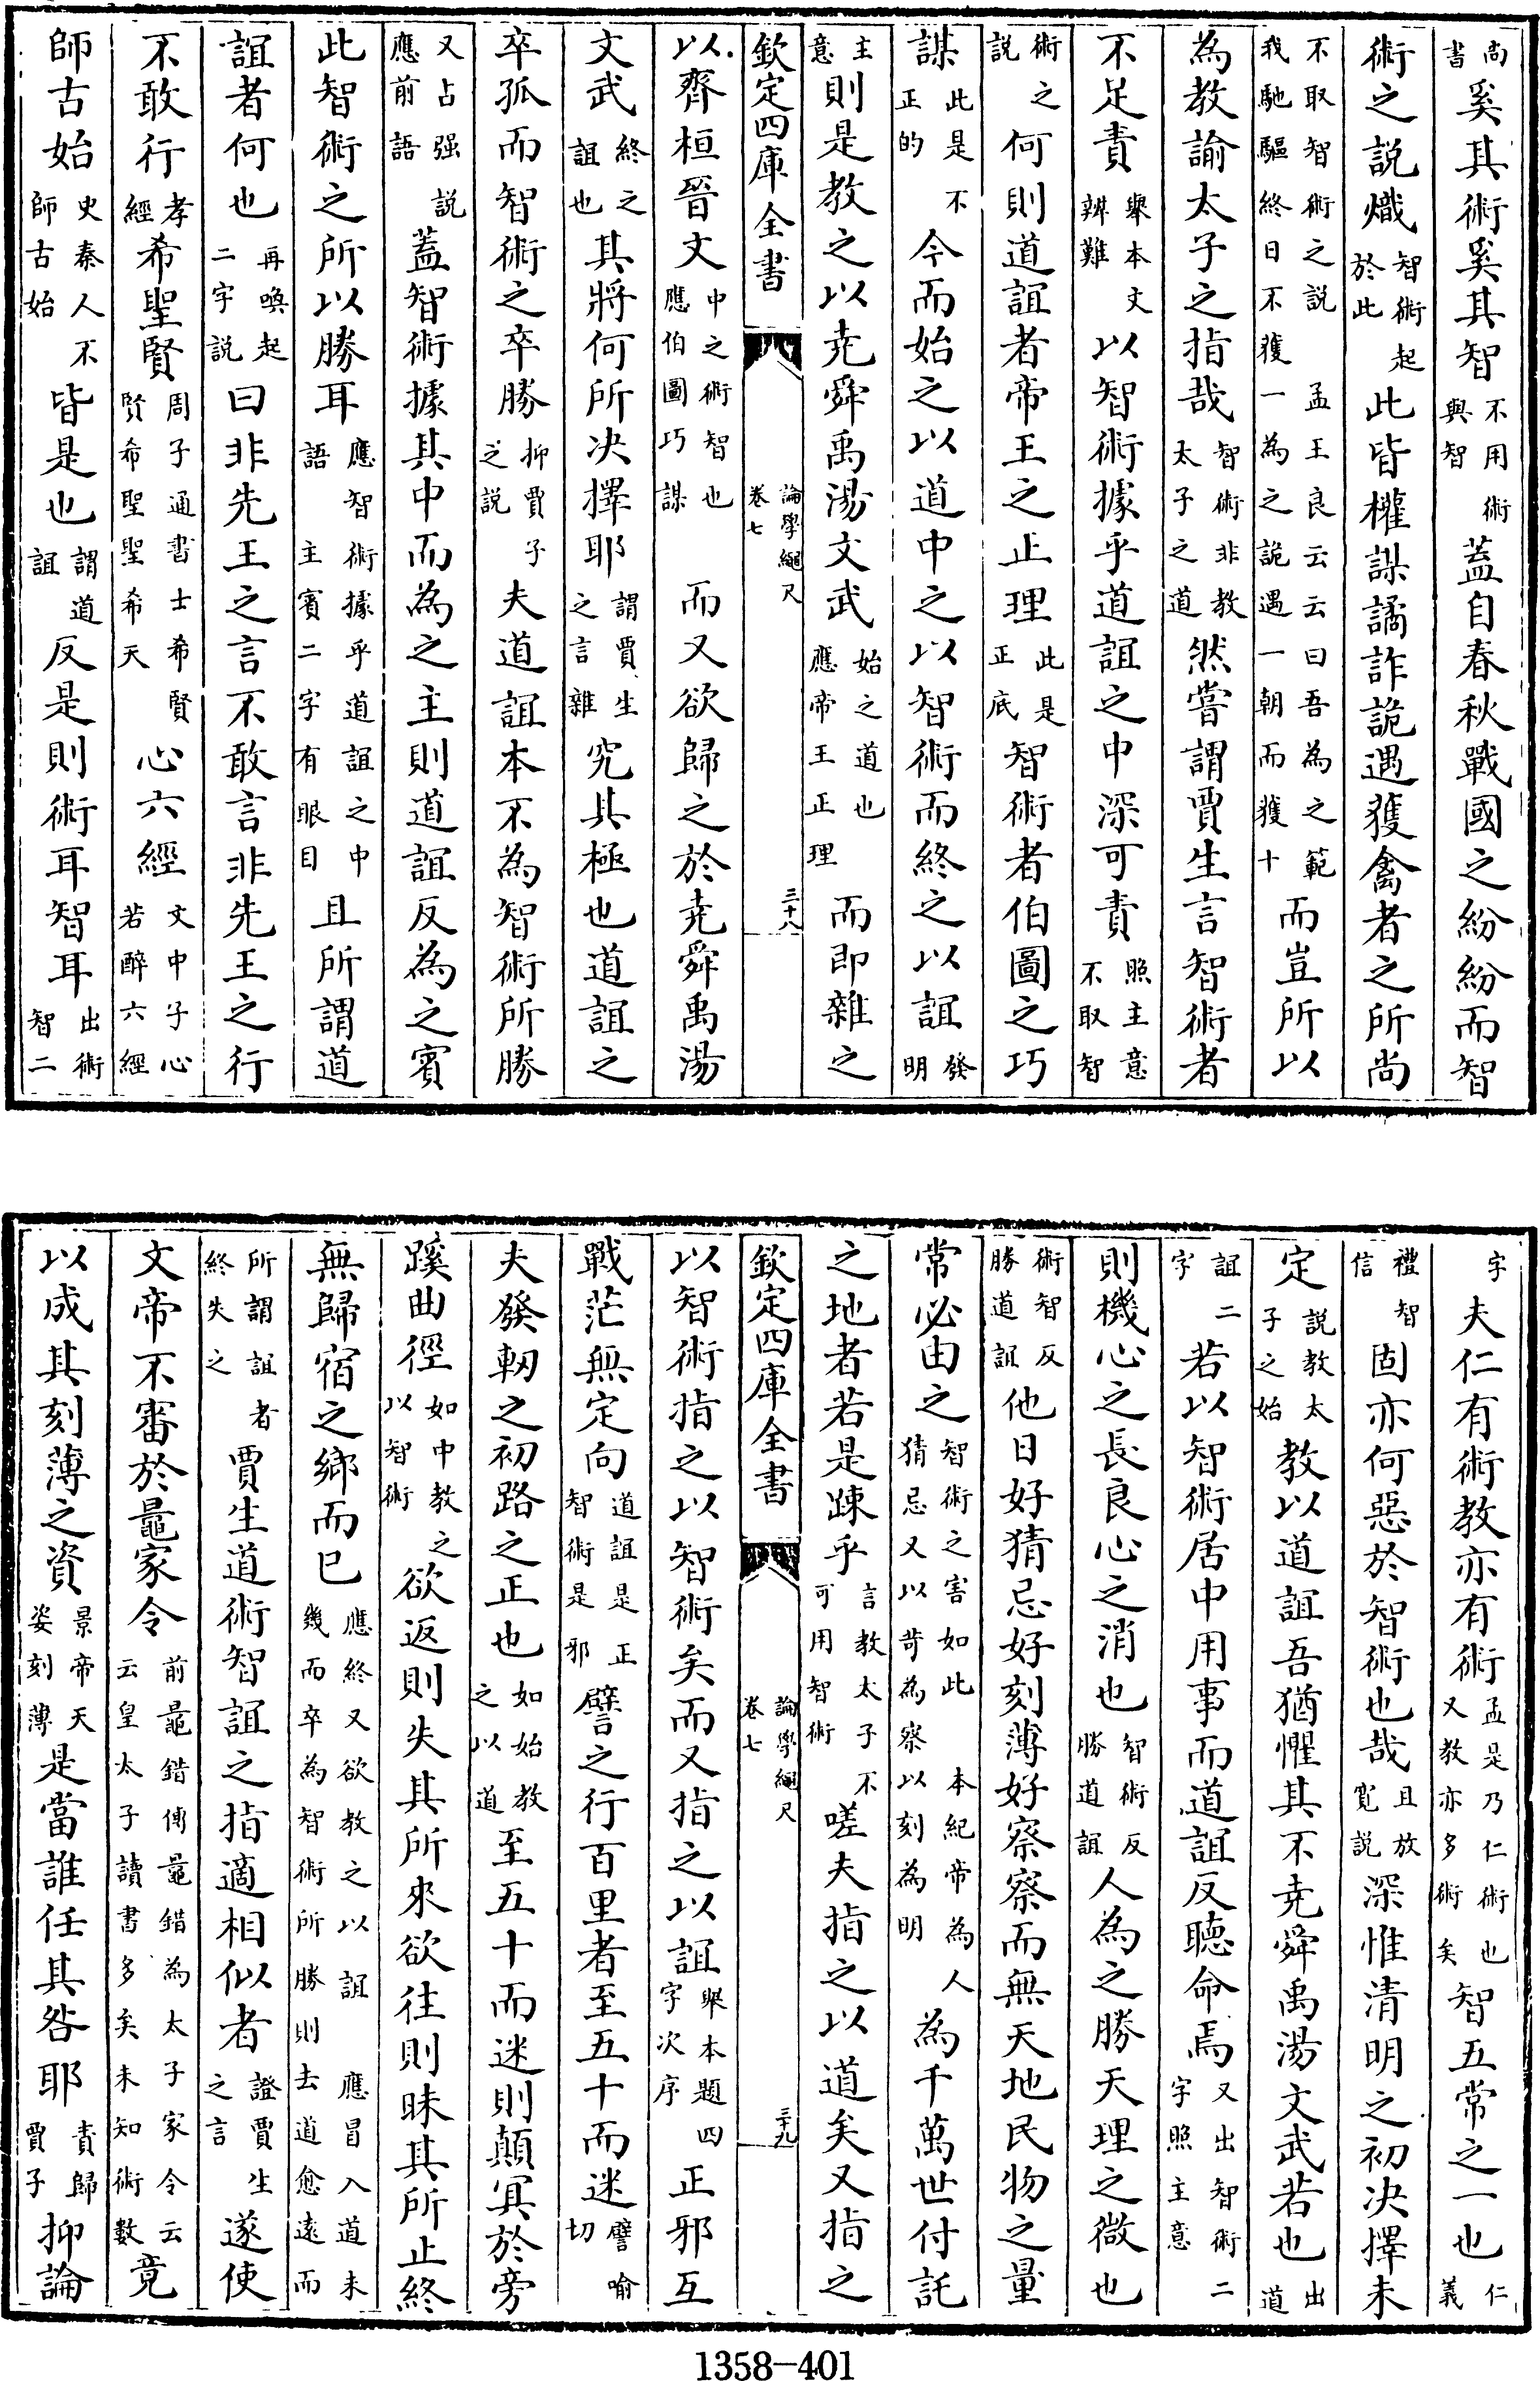 尚書奚其術奚其智不用術與智蓋自春秋戰國之紛紛而智
術之說熾智術起於此此皆權謀譎詐詭遇獲禽者之所尚
不取智術之說孟王良云云曰吾為之範我馳驅終日不獲一為之詭遇一朝而獲十而豈所以
為教諭太子之指哉智術非教太子之道然嘗謂賈生言智術者
不足責舉本文辨難以智術據乎道誼之中深可責照主意不取智
術之說何則道誼者帝王之正理此是正底智術者伯圖之巧
謀此是不正的今而始之以道中之以智術而終之以誼發明
主意則是教之以堯舜禹湯文武始之道也應帝王正理而即雜之
欽定四庫全書 論學繩尺卷七 三十八
以齊桓晉文中之術智也應伯圖巧謀而又欲歸之於堯舜禹湯
文武終之誼也其將何所決擇耶謂賈生之言雜究其極也道誼之
卒孤而智術之卒勝抑賈子之說夫道誼本不為智術所勝
又占强說應前語蓋智術據其中而為之主則道誼反為之賓
此智術之所以勝耳應智術據乎道誼之中語主賓二字有眼目且所謂道
誼者何也再喚起二字說曰非先王之言不敢言非先王之行
不敢行孝經希聖賢周子通書士希賢賢希聖聖希天心六經文中子心若醉六經
師古始史秦人不師古始皆是也謂道誼反是則術耳智耳出術智二
字夫仁有術教亦有術孟是乃仁術也又教亦多術矣智五常之一也仁義
禮智信固亦何惡於智術也哉且放寬說深惟清明之初決擇未
定說教太子之始教以道誼吾猶懼其不堯舜禹湯文武若也出道
誼二字若以智術居中用事而道誼反聽命焉又出智術二字照主意
則機心之長良心之消也智術反勝道誼人為之勝天理之微也
術智反勝道誼他日好猜忌好刻薄好察察而無天地民物之量
常必由之智術之害如此猜忌又以苛為察以刻為明本紀帝為人為千萬世付託
之地者若是踈乎言教太子不可用智術嗟夫指之以道矣又指之
欽定四庫全書 論學繩尺卷七 三十九
以智術指之以智術矣而又指之以誼舉本題四字次序正邪互
戰茫無定向道誼是正智術是邪譬之行百里者至五十而迷譬喻切
夫發軔之初路之正也如始教之以道至五十而迷則顛冥於旁
蹊曲徑如中教之以智術欲返則失其所來欲往則昧其所止終
無歸宿之鄉而已應終又欲教之以誼幾而卒為智術所勝則去道愈遠而應冒入道未
所謂誼者終失之賈生道術智誼之指適相似者證賈生之言遂使
文帝不審於鼂家令前鼂錯傳鼂錯為太子家令云云皇太子讀書多矣未知術數竟
以成其刻薄之資景帝天姿刻薄是當誰任其咎耶責歸賈子抑論
1358-401